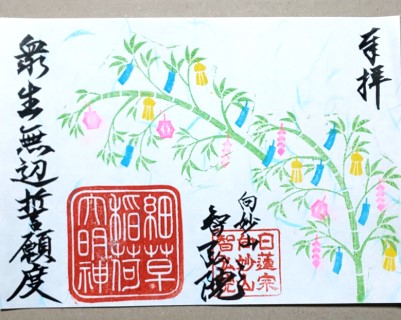 奉拝
向妙山
日蓮宗
細草
稲荷
大明神
衆生無辺誓願度